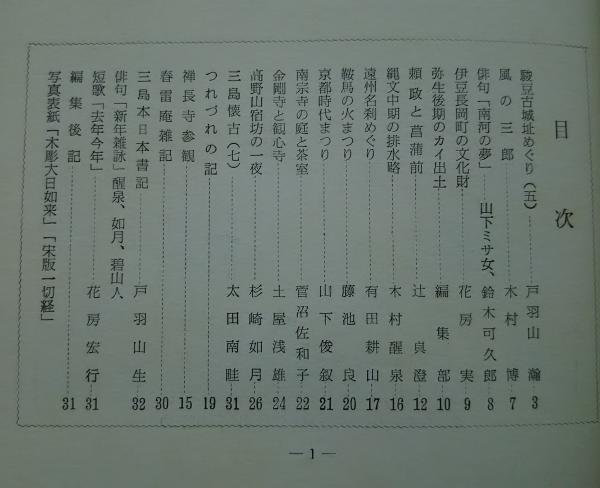 目次
駿豆古城址めぐり(五)……戸羽山瀚…3
風の三郎……木村博…7
俳句「南河の夢」 山下ミサ女、鈴木可久郎…8
伊豆長岡町の文化財……花房実…9
弥生後期のカイ出土……編集部…10
頼政と菖蒲前……辻眞澄…12
縄文中期の排水路……木村醒泉…16
遠州名刹めぐり……有田耕山…17
鞍馬の火まつり……藤池良…20
京都時代まつり……山下俊叙…21
南宗寺の庭と茶室……菅沼佐和子…22
金剛寺と観心寺……土屋浅雄…24
高野山宿坊の一夜……杉崎如月…26
三島懐古(七)……太田南畦…31
つれづれの記……19
禅長寺参観……15
春雷庵雑記……30
三島本日本書記……戸羽山生…32
俳句「新年雑詠」醒泉、如月、碧山人
短歌「去年今年」……花房宏行…31
編集後記……31
写真表紙「木彫大日如来」「宋版一切経」
—1—